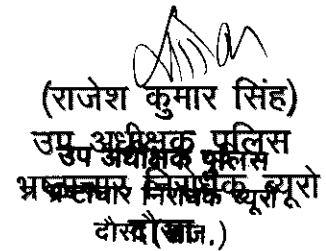 (राजेश कुमार सिंह)
उप अधीक्षक पुलिस
उप अधीक्षक पुलिस
भ्रष्टाचार निरोधक ब्यूरो
भ्रष्टाचार निरोधक ब्यूरो
दौसा (राज.)
दौसा